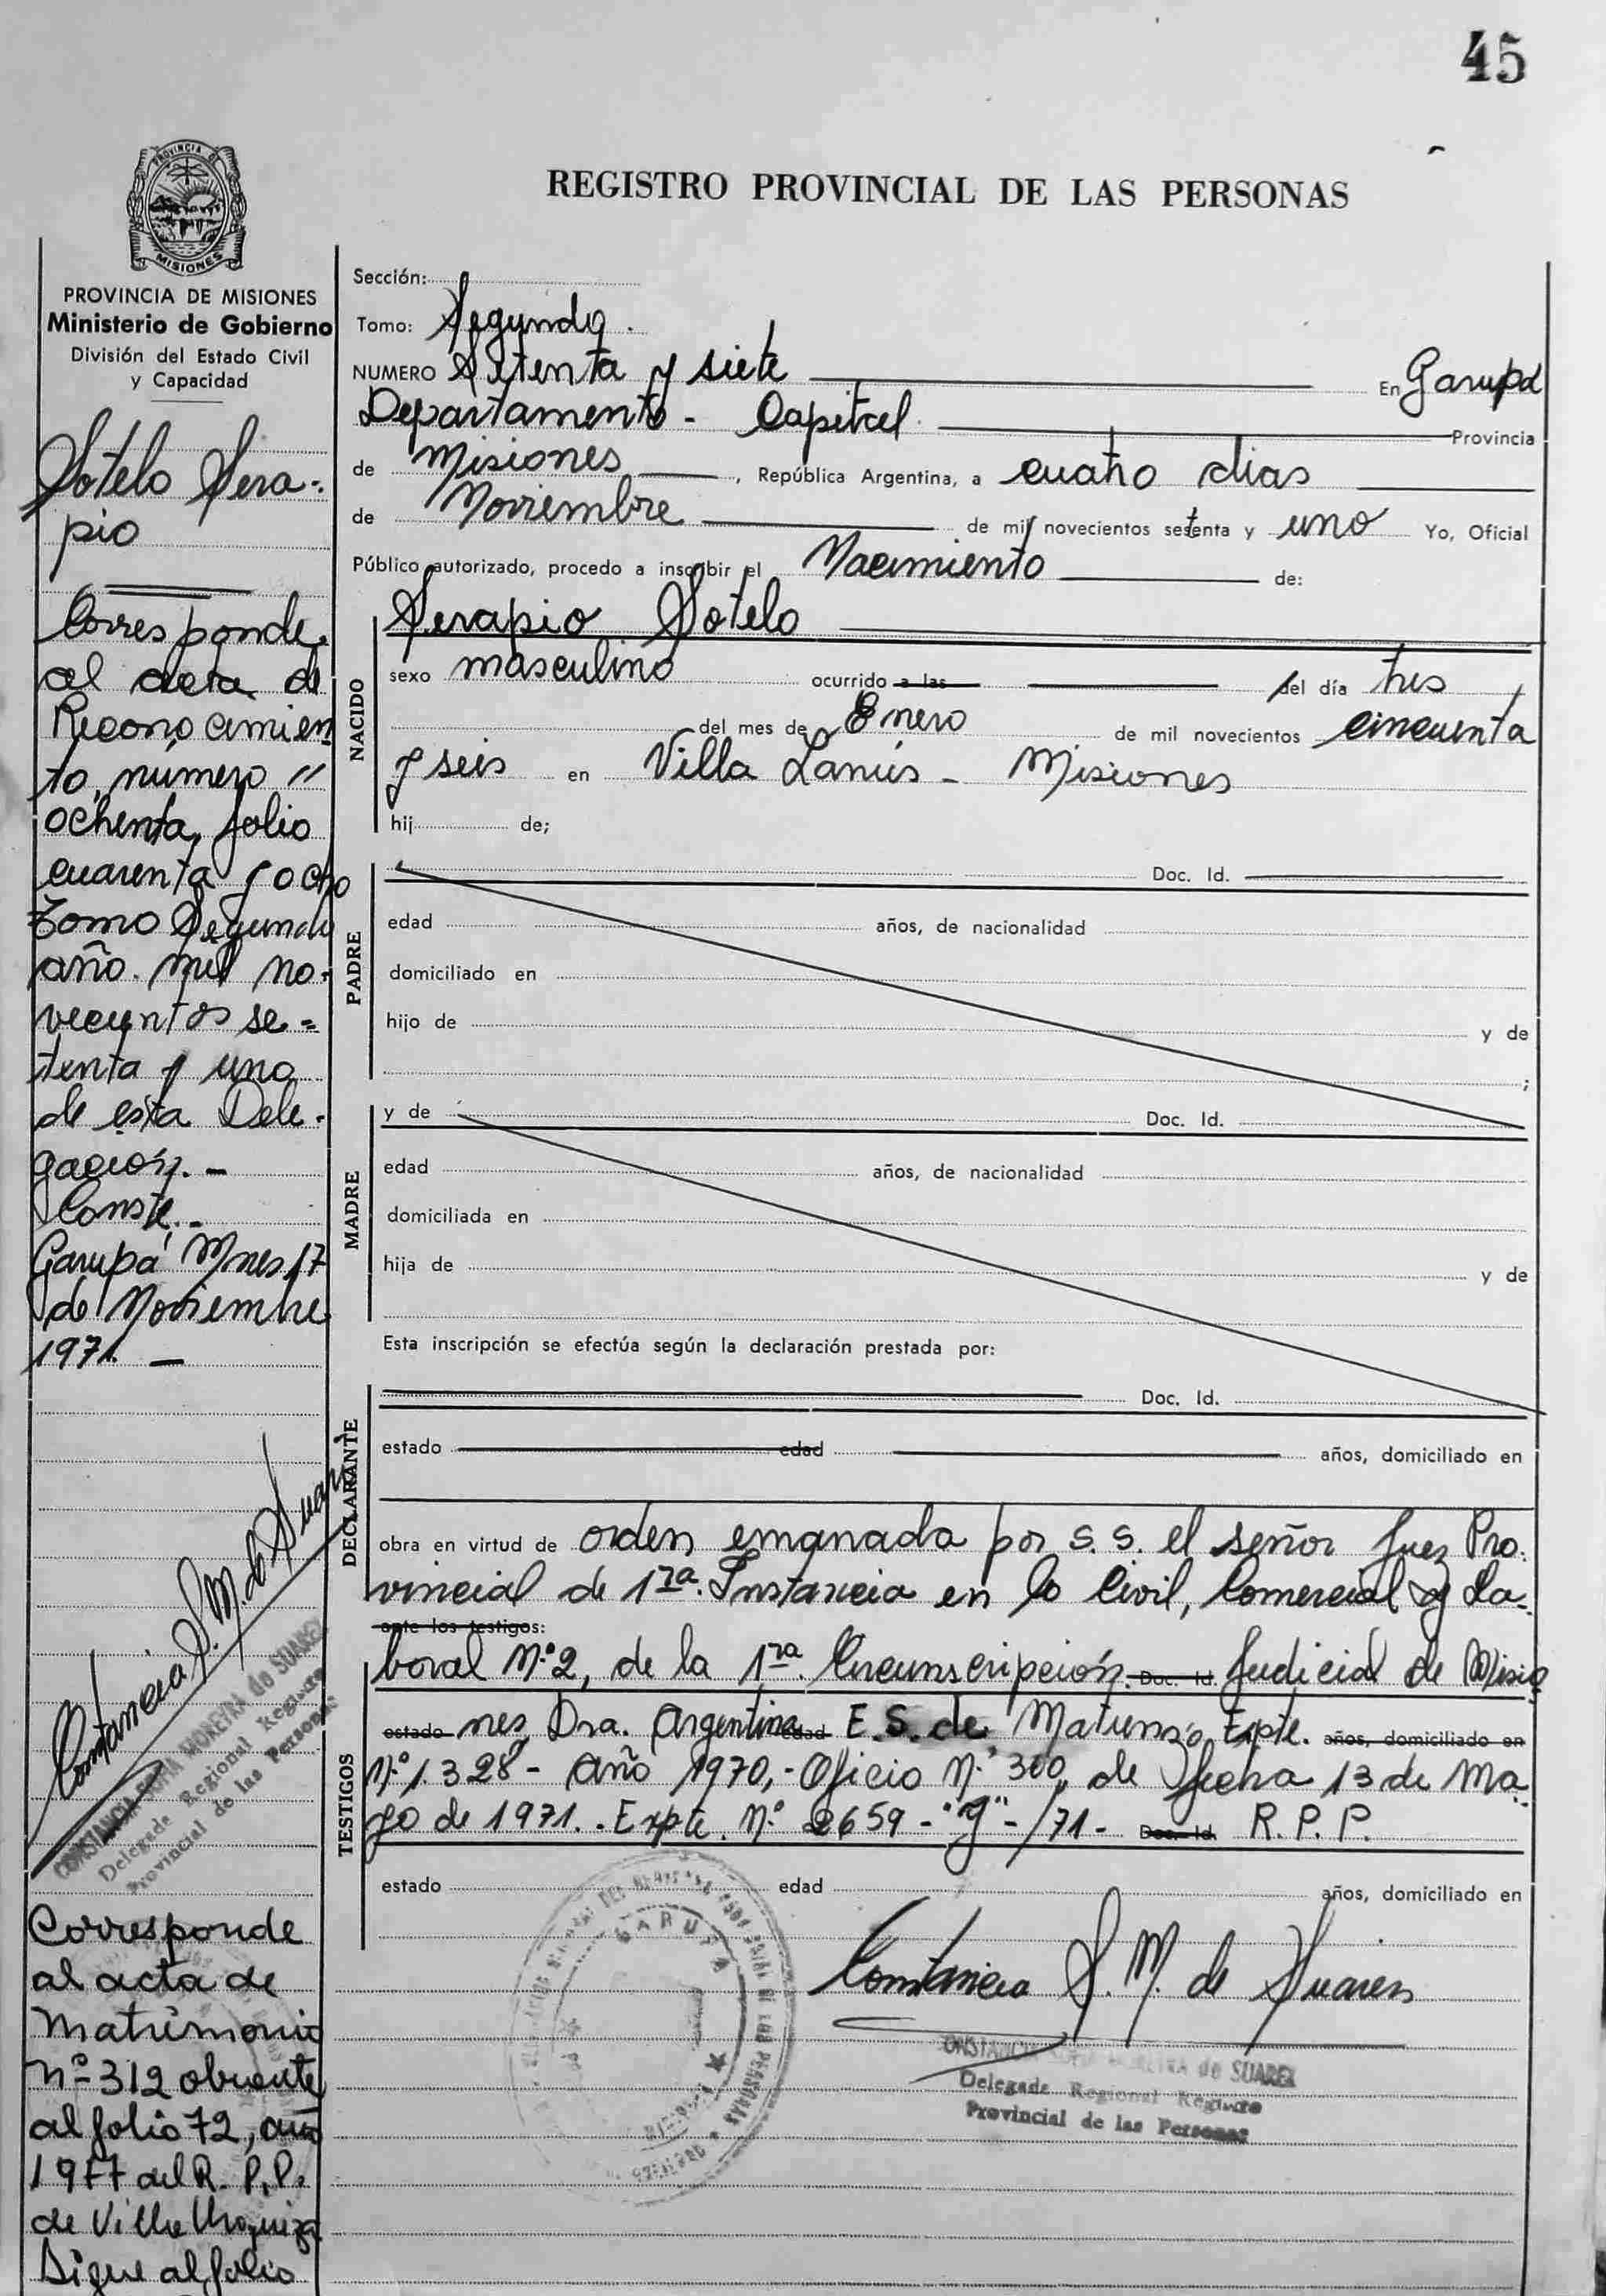 45
PROVINCIA DE
MISIONES
REGISTRO PROVINCIAL DE LAS PERSONAS
PROVINCIA DE MISIONES
Ministerio de Gobierno
División del Estado Civil
y Capacidad
Sotelo Sera-
pio
Corresponde
al acta de
Reconocimien
to, número "
ochenta, folio
cuarenta y ocho
Tomo Segundo
año mil no-
vecientos se=
tenta y uno
de esta Dele-
gación.-
Conste.-
Garupá Mnes, 17
de Noviembre
1971. -
Constancia S. M. de Suarez
CONSTANCIA SOFIA MOREIRA de SUAREZ
Delegada Regional Registro
Provincial de las Personas
Corresponde
al acta de
Matrimonio
Nº 312 obrante
al folio 72, año
1977 del R. P. P.
de Villa Urquiza
Sigue al folio
Sección:
Tomo: Segundo.
NUMERO Setenta y siete En Garupá
Departamento - Capital. Provincia
de Misiones, República Argentina, a cuatro dias
de Noviembre de mil novecientos setenta y uno Yo, Oficial
Público autorizado, procedo a inscribir el Nacimiento de:
NACIDO
Serapio Sotelo
sexo masculino ocurrido a las del día tres
del mes de Enero de mil novecientos cincuenta
y seis en Villa Lanús - Misiones
hij de;
PADRE
Doc. Id.
edad años, de nacionalidad
domiciliado en
hijo de y de
;
MADRE
y de Doc. Id.
edad años, de nacionalidad
domiciliada en
hija de y de
Esta inscripción se efectúa según la declaración prestada por:
DECLARANTE
Doc. Id.
estado edad años, domiciliado en
obra en virtud de orden emanada por S. S. el señor Juez Pro-
vincial de 1ra. Instancia en lo Civil, Comercial y La-
ante los testigos:
boral Nº 2, de la 1ra. Circunscripción Doc. Id. Judicial de Misio
TESTIGOS
estado nes, Dra. Argentina edad E. S. de Expte. años, domiciliado en
Nº 1.328 - Año 1970,- Oficio Nº 360, de fecha 13 de Ma
yo de 1971.- Expte. Nº 2659 - "g" - /71 - Doc. Id. R. P. P.
estado edad años, domiciliado en
GARUPA
Constancia S. M. de Suarez
CONSTANCIA SOFIA MOREIRA de SUAREZ
Delegada Regional Registro
Provincial de las Personas